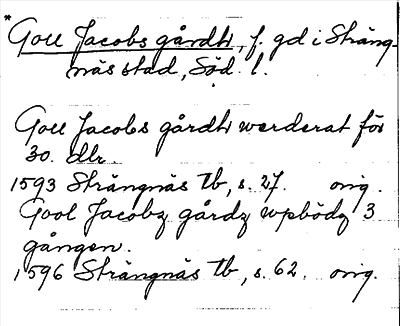 *
Goll Jacobs gårdh, f. gd i Sträng-
näs stad, Söd. l.
Goll Jacobs gårdh werderat för
30. dlr
1593 Strängnäs tb, s. 27. orig.
Gool Jacobz gårdz wpbödz 3
gången.
1596 Strängnäs tb, s. 62. orig.